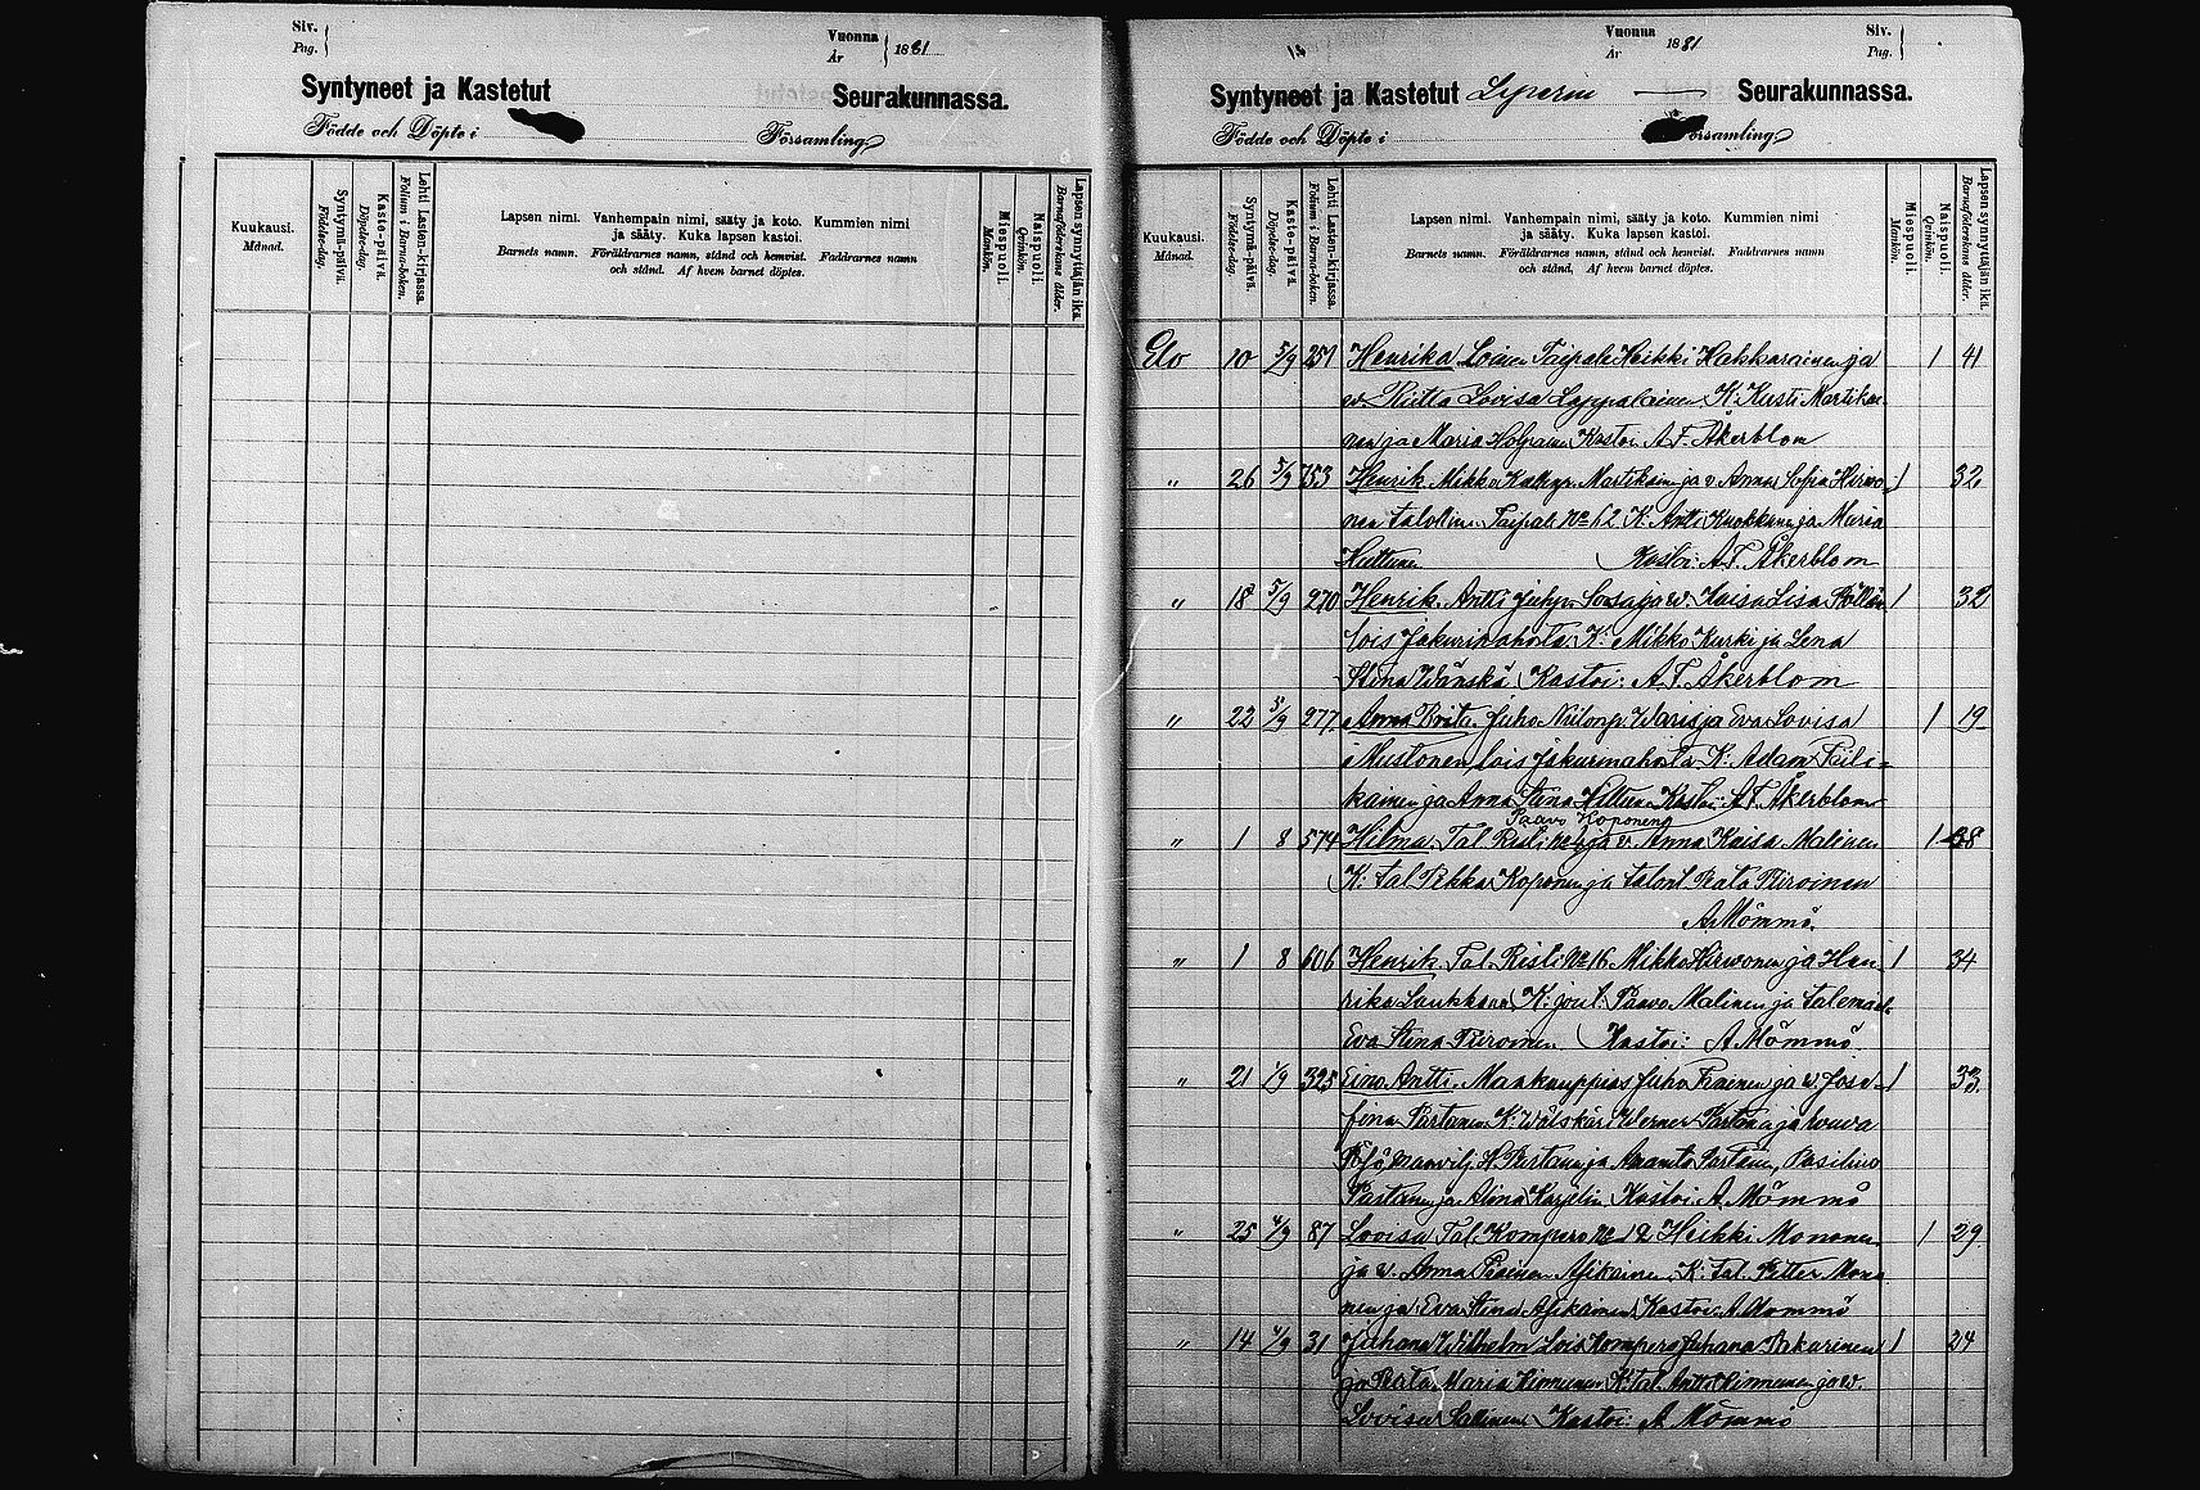 Siv.
Pag.
Vuonna
År
1881
Syntyneet ja Kastetut
Seurakunnassa.
Födde och Döpte i
Församling
Kuukausi.
Månad.
Syntymä-päivä.
Födelse-dag.
Kaste-päivä.
Döpelse-dag.
Lehti Lasten-kirjassa.
Folium i Barna-boken.
Lapsen nimi. Vanhempain nimi, sääty ja koto. Kummien nimi
ja sääty. Kuka lapsen kastoi.
Barnets namn. Föräldrarnes namn, stånd och hemvist. Faddrarnes namn
och stånd. Af hvem barnet döptes.
Miespuoli.
Mankön.
Naispuoli.
Qvinkön.
Lapsen synnyttäjän ikä.
Barnaföderskans ålder.
Vuonna
År
1881
Siv.
Pag.
Syntyneet ja Kastetut Liperin Seurakunnassa.
Födde och Döpte i
Församling
Kuukausi.
Månad.
Syntymä-päivä.
Födelse-dag.
Kaste-päivä.
Döpelse-dag.
Lehti Lasten-kirjassa.
Folium i Barna-boken.
Lapsen nimi. Vanhempain nimi, sääty ja koto. Kummien nimi
ja sääty. Kuka lapsen kastoi.
Barnets namn. Föräldrarnes namn, stånd och hemvist. Faddrarnes namn
och stånd, Af hvem barnet döptes.
Miespuoli.
Mankön.
Naispuoli.
Qvinkön.
Lapsen synnyttäjän ikä.
Barnaföderskans ålder.
Elo 10 5/9 251 Henrika Loinen Taipale Heikki Hakkarainen ja 1 41
w. Riitta Lovisa Lappalainen K: Kusti Martikai-
nen ja Maria Kastoi A. F. Åkerblom
" 26 5/9 753 Henrik. Mikko Martikainen ja v. Anna Sofia Hirvo- 1 32
nen Taipale No 62 K: Antti Kuokkanen ja Maria
Huttunen Kastoi: A. F. Åkerblom
" 18 5/9 270 Henrik. Antti Juhp. Sosa ja w. Kaisa Lisa 1 32
lois Jakurinahosta K: Mikko Kurki ja Lena
Stina Wänskä Kastoi: A. F. Åkerblom
" 22 5/9 277 Anna Brita. Juho Niilonp. Waris ja Eva Lovisa 1 19
Mustonen, lois Jakurinahosta K: Adam Piili-
kainen ja Anna Stina Kastoi: A. F. Åkerblom
Paavo Koponen
" 1 8 574 Hilma. Tal Risti ja v. Anna Kaisa Malinen 1 38
K: tal. Pekka Koponen ja Beata Piiroinen
A. Mömmö.
" 1 8 606 Henrik. Tal. Risti No 16 Mikko Hirwonen ja Hen- 1 34
rika Laukkanen K: Paavo Malinen ja
Eva Stina Piiroinen Kastoi: A Mömmö
" 21 1/9 325 Eino Antti. Maakauppias Juho ja w. Jose- 1 33
fina Partanen K: Wälskäri Werner Partanen ja rouva
H. Partanen ja Amanta Partanen,
Partanen ja Alina Karjelin Kastoi A. Mömmö
" 25 4/9 87 Lovisa Tal. Kompero Heikki Mononen 1 29
ja v. Anna Asikainen K: tal. Petter Mono
nen ja Eva Stina Asikainen Kastoi A Mömmö
" 14 4/9 31 Juhana Wilhelm Lois Kompero Juhana Pakarinen 1 24
ja Beata Maria Kinnunen K: tal. Antti Kinnunen ja w.
Lovisa Sallinen Kastoi: A Mömmö